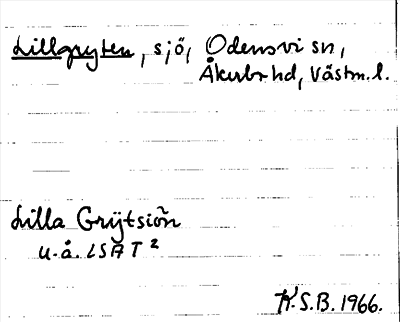 Lillgryten, sjö, Odensvi sn,
Åkerbr hd, Västm. l.
Lilla Grÿtsiön
u. å. LSA T²
K.S.B. 1966.